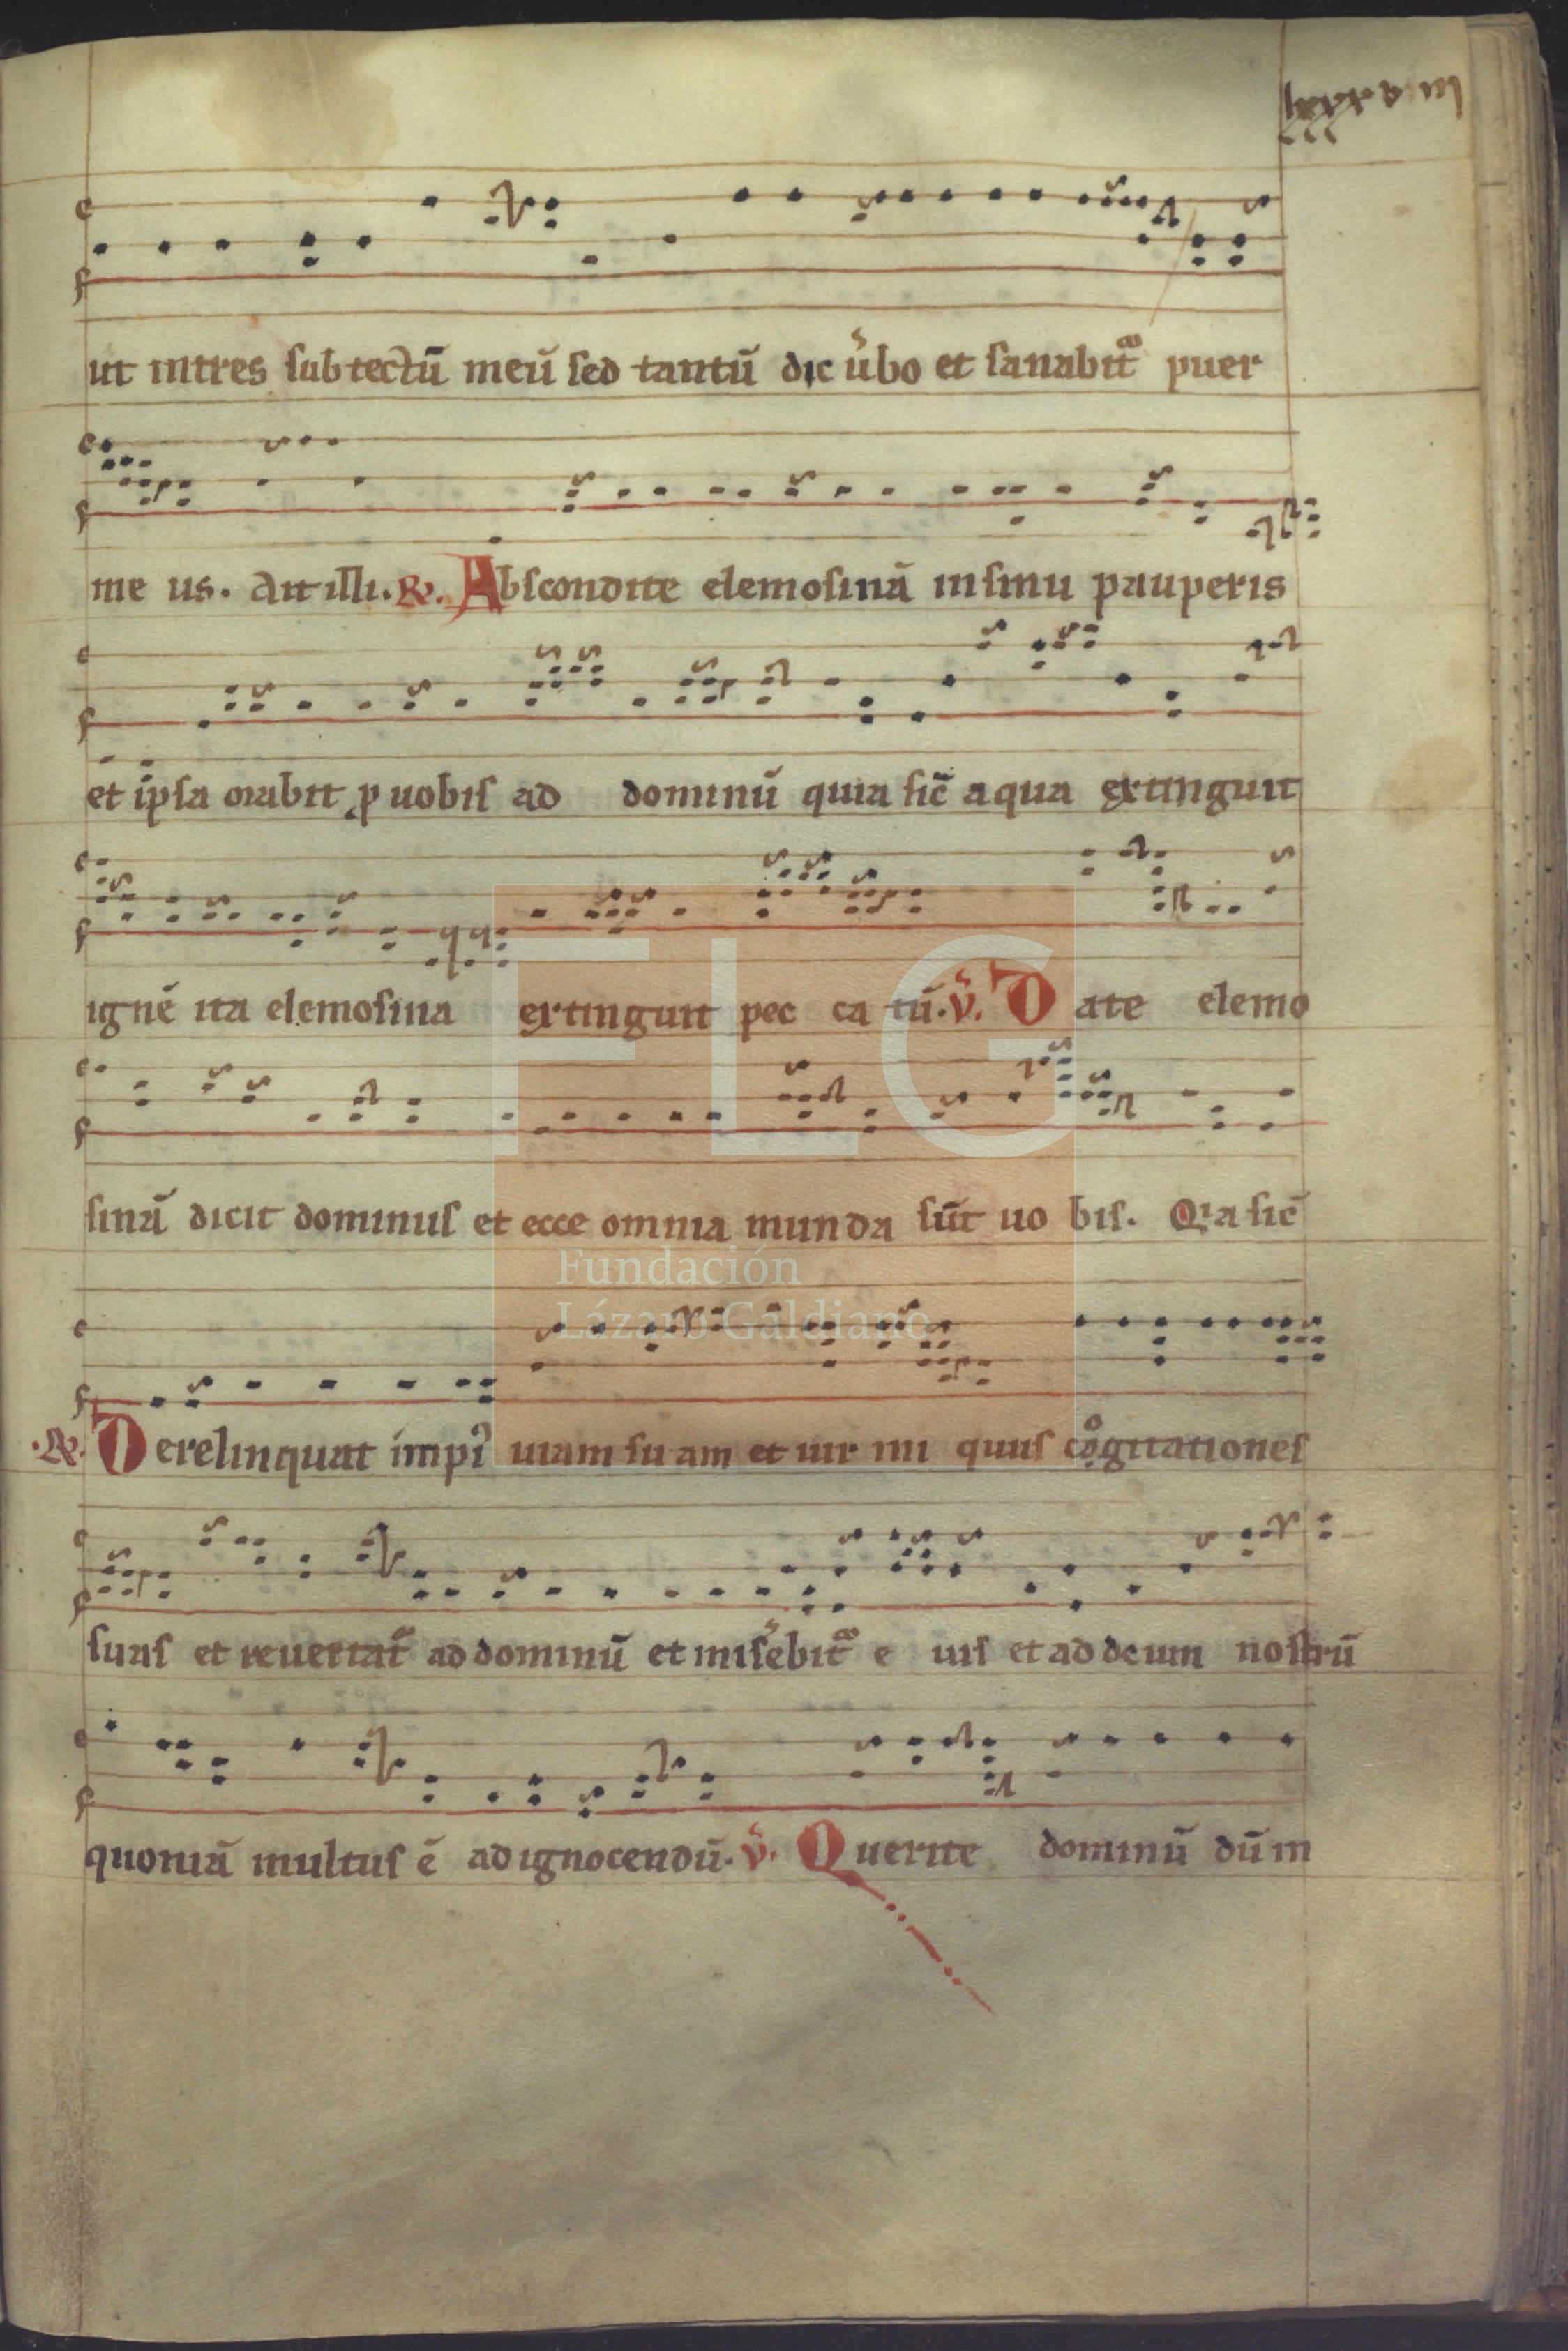 ut intres sub tectū meū sed tantū dic ůbo et sanabitᷓ puer
me us. Ait illi. R̷. Abscondite elemosinā in sinu pauperis
et ip̄sa orabit ꝓ uobis ad dominū quia sic̄ aqua extinguit
ignē ita elemosina extinguit pec ca tū. v̄. Date elemo
sinā dicit dominus et ecce omnia munda sūt uo bis. Qꝛa sic̄
R̷. Derelinquat impiꝰ uiam su am et uir ini quus cogitationes
suas et reuertatᷓ ad dominū et mis̄ebitᷓ e ius et ad deum nostrū
quoniā multus ē ad ignocendū. v̄. Querite dominū dū in
FLG
Fundación
Lázaro Galdiano